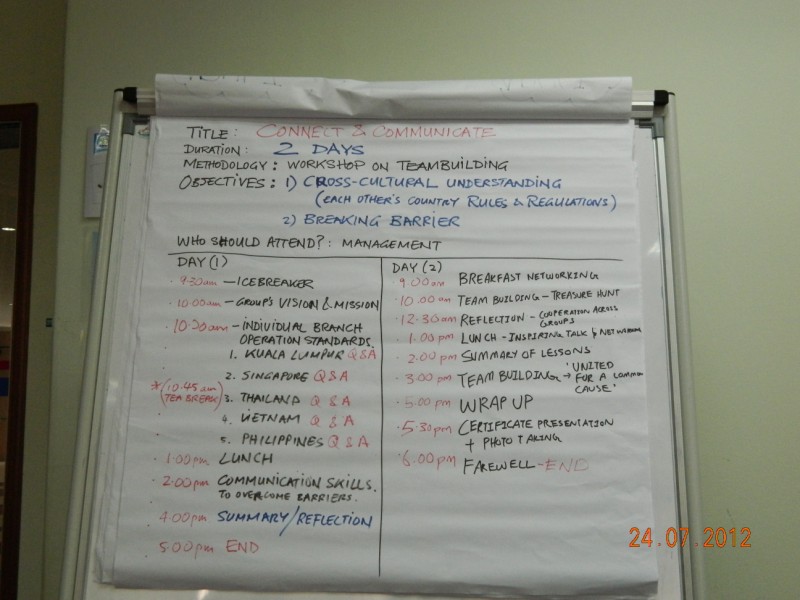 TITLE: CONNECT & COMMUNICATE
DURATION: 2 DAYS
METHODOLOGY: WORKSHOP ON TEAMBUILDING
OBJECTIVES: 1) CROSS-CULTURAL UNDERSTANDING
(EACH OTHER'S COUNTRY RULES & REGULATIONS)
2) BREAKING BARRIER
WHO SHOULD ATTEND?: MANAGEMENT
DAY (1)
· 9:30am — ICEBREAKER
· 10:00am — GROUP'S VISION & MISSION
· 10:20am — INDIVIDUAL BRANCH
OPERATION STANDARDS.
1. KUALA LUMPUR Q&A
2. SINGAPORE Q&A
*(10.45am
TEA BREAK) 3. THAILAND Q&A
4. VIETNAM Q&A
5. PHILIPPINES Q&A
· 1:00pm LUNCH
· 2:00pm COMMUNICATION SKILLS.
TO OVERCOME BARRIERS.
· 4:00pm SUMMARY/REFLECTION
· 5:00pm END
DAY (2)
· 9.00am BREAKFAST NETWORKING
· 10.00am TEAM BUILDING — TREASURE HUNT
· 12.30am REFLECTION — COOPERATION ACROSS
GROUPS
· 1.00pm LUNCH — INSPIRING TALK & NETWORKING
· 2:00pm SUMMARY OF LESSONS
· 3:00pm TEAM BUILDING → 'UNITED
FOR A COMMON
CAUSE'
· 5.00pm WRAP UP
· 5:30pm CERTIFICATE PRESENTATION
+ PHOTO TAKING
· 6.00pm FAREWELL — END
24.07.2012